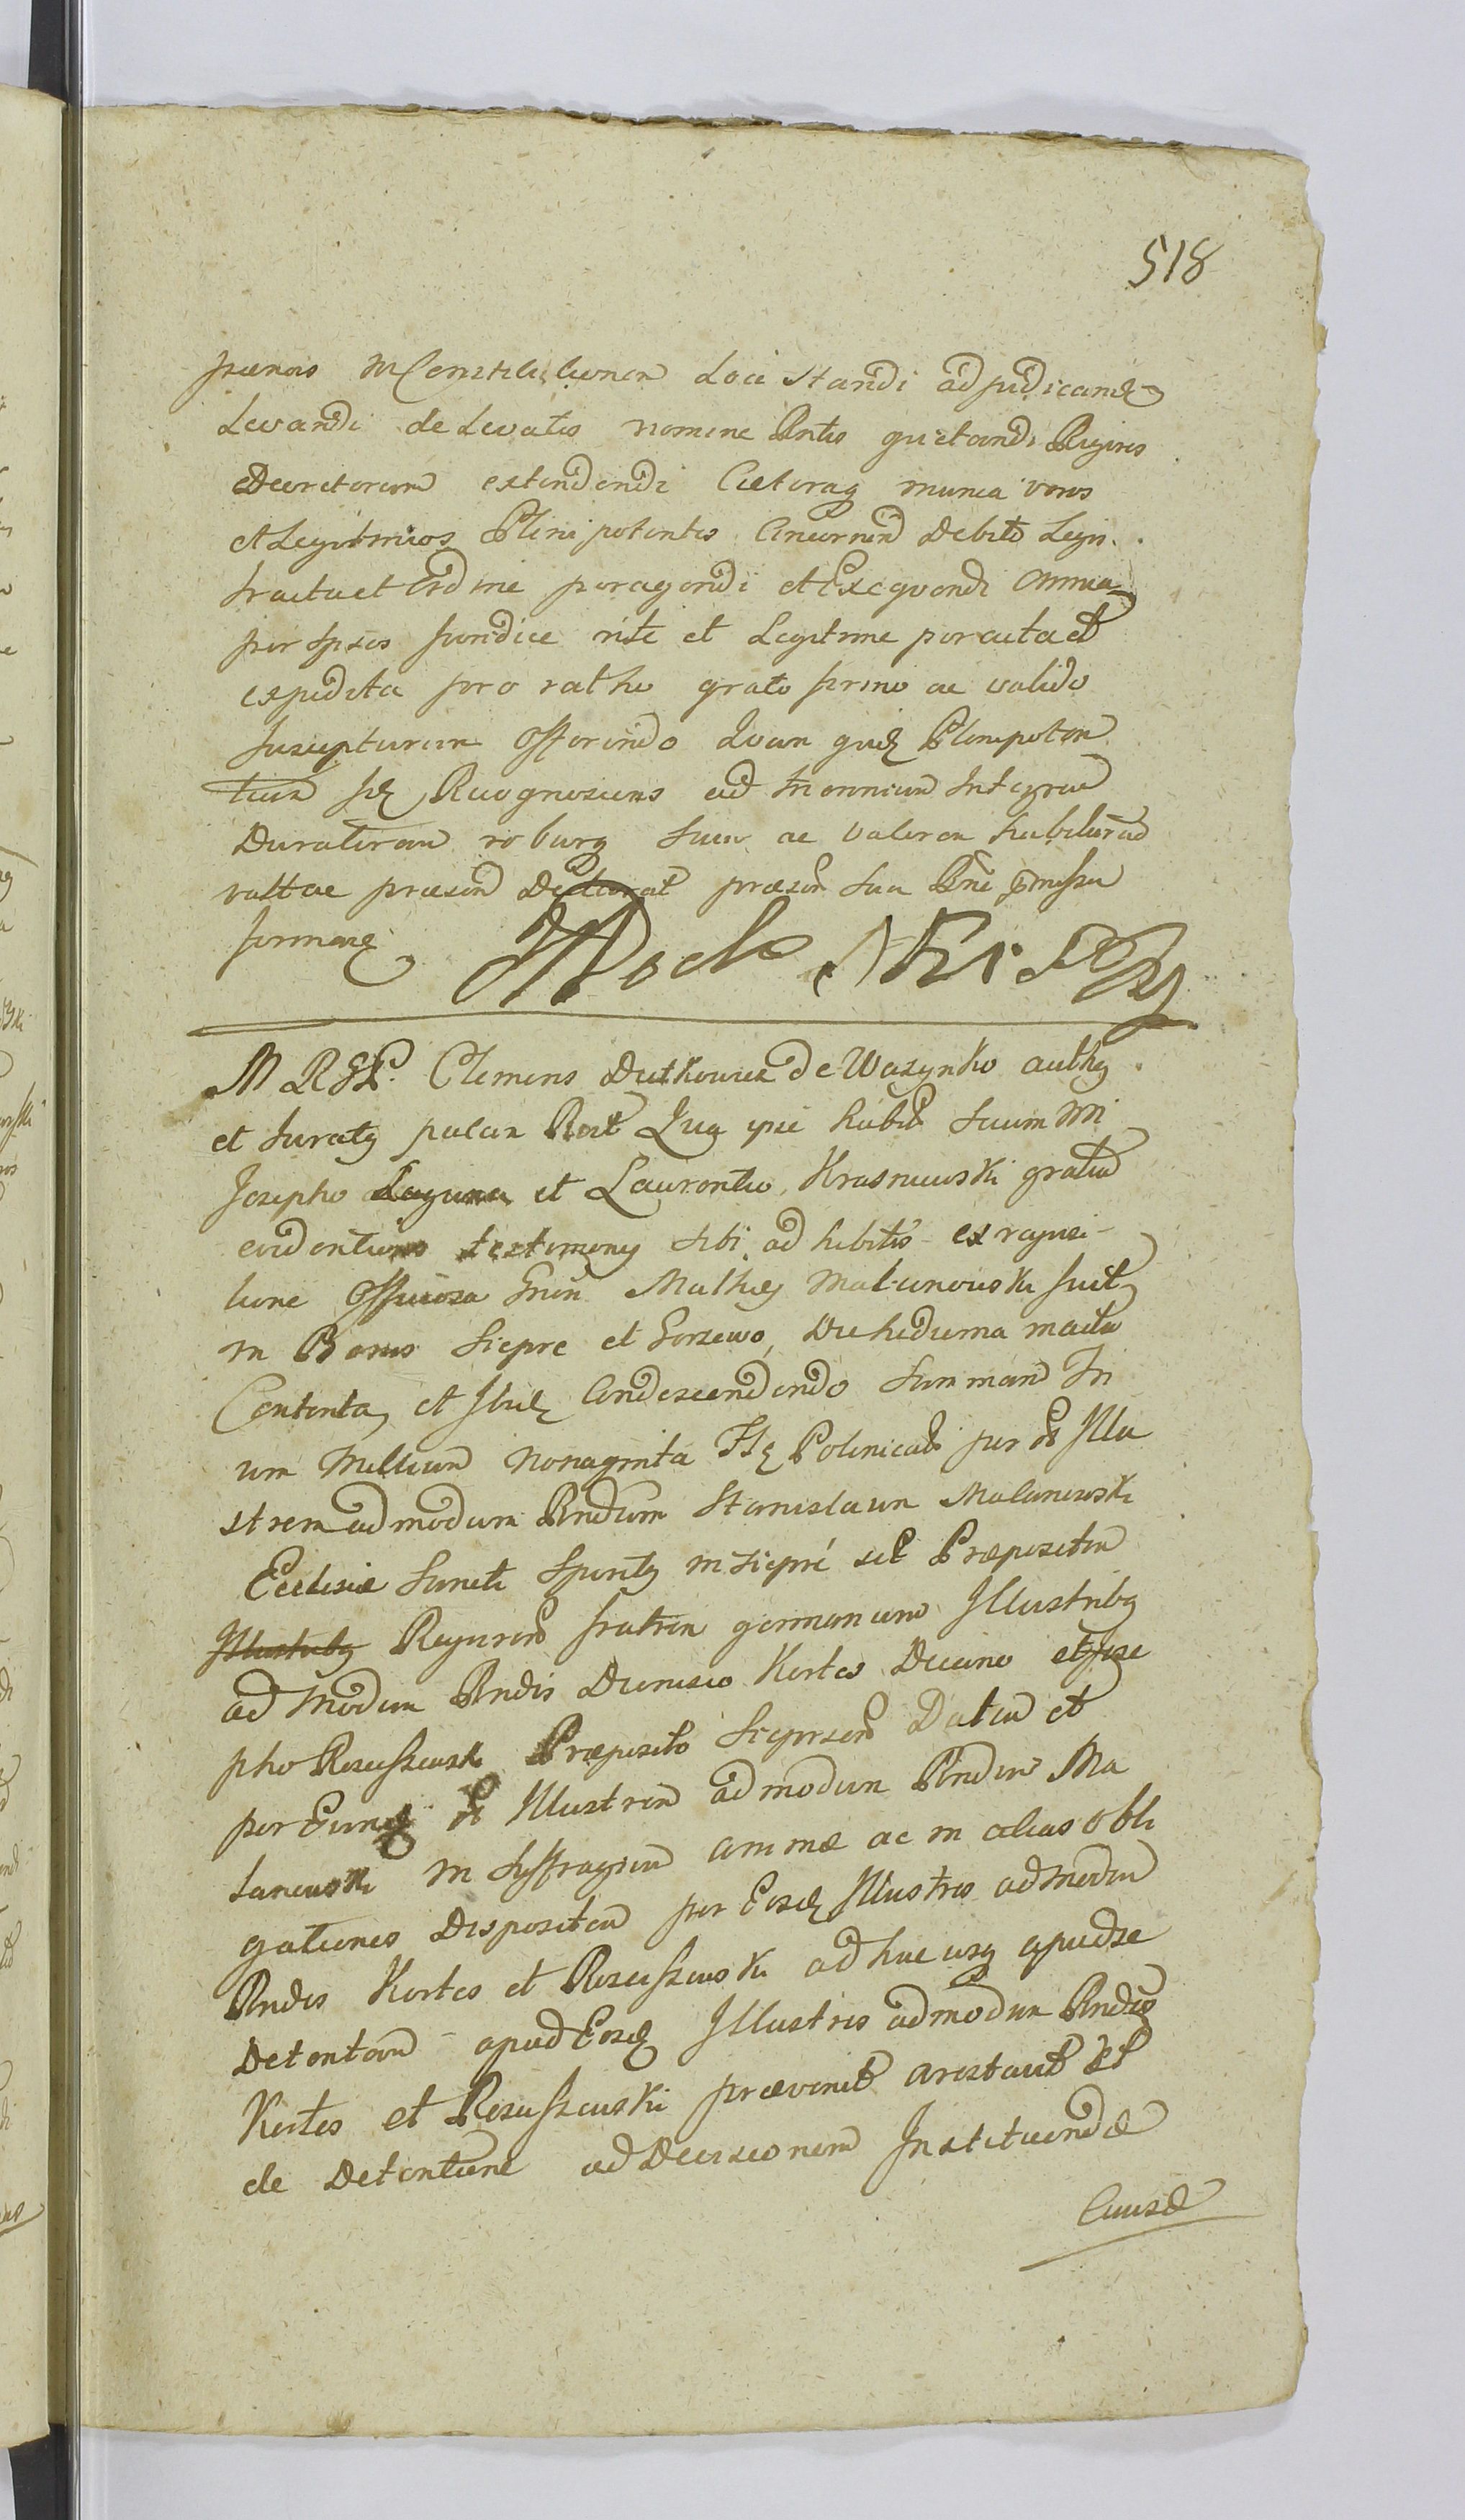 518
pœnas in Constitutionem Loci standi adjudicand
Levandi de Levatis nomine Pntis quietandi Rigores
Decretorum extendendi Cæteraq munia veros
et Legitimos Plenipotentes Concernen Debito Legis
tractu et Ordine peragendi et Exequendi Omnia
per Ipsos Juridice rite et Legitime peracta et
expedita pro ratho grato firmo ac valido
Suscepturum Offerendo Quam quid Plenipoten
tiam sd Recognoscens ad Triennium Integrum
Duraturam roburq suum ac valorem habituram
vult ac præsen Declarat præsen sua Bne pmissa
firmans
M RGL. Clemens Dutkowicz de Waszynko authg
et Juratg palam Recit Qua ipse habit secum NN
Josepho Laguna et Laurentio Krasniewski gratia
evidentioris testimony sibi adhibitis ex requisi-
tione Officiosa Grsi Mathey Malanowski fuit
in Bonis Sieprc et Gorzewo, Die hedierna mactu
Contenta, et Ibid Condescendendo Summam Tri
um Millium Nonaginta Fl Polonicals per ol Illu
strem admodum Rndum Stanislaum Malanowski
Ecclesiæ Sancti Spiritg in Sieprc sit Præpositum
Illustribg Reguren fratrem germanum Illustribg
ad Modum Rndis Dionisio Kortes Decano et Jose
pho Rosciszewsk Præposito Sieprsen Datam et
per Eundq ol Illustrem admodum Rndum Ma
lanowski in Suffragium animæ ac in alias obli
gationes Dispositam per Eosd Illustres admodum
Rndos Kortes et Rosciszewski adhucusq apud se
Detentam apud Eosd Illustres admodum Rndos
Kortes et Rosciszewski prævenit arestavit et
de Detentione ad Decisionem Instituendæ
Causæ